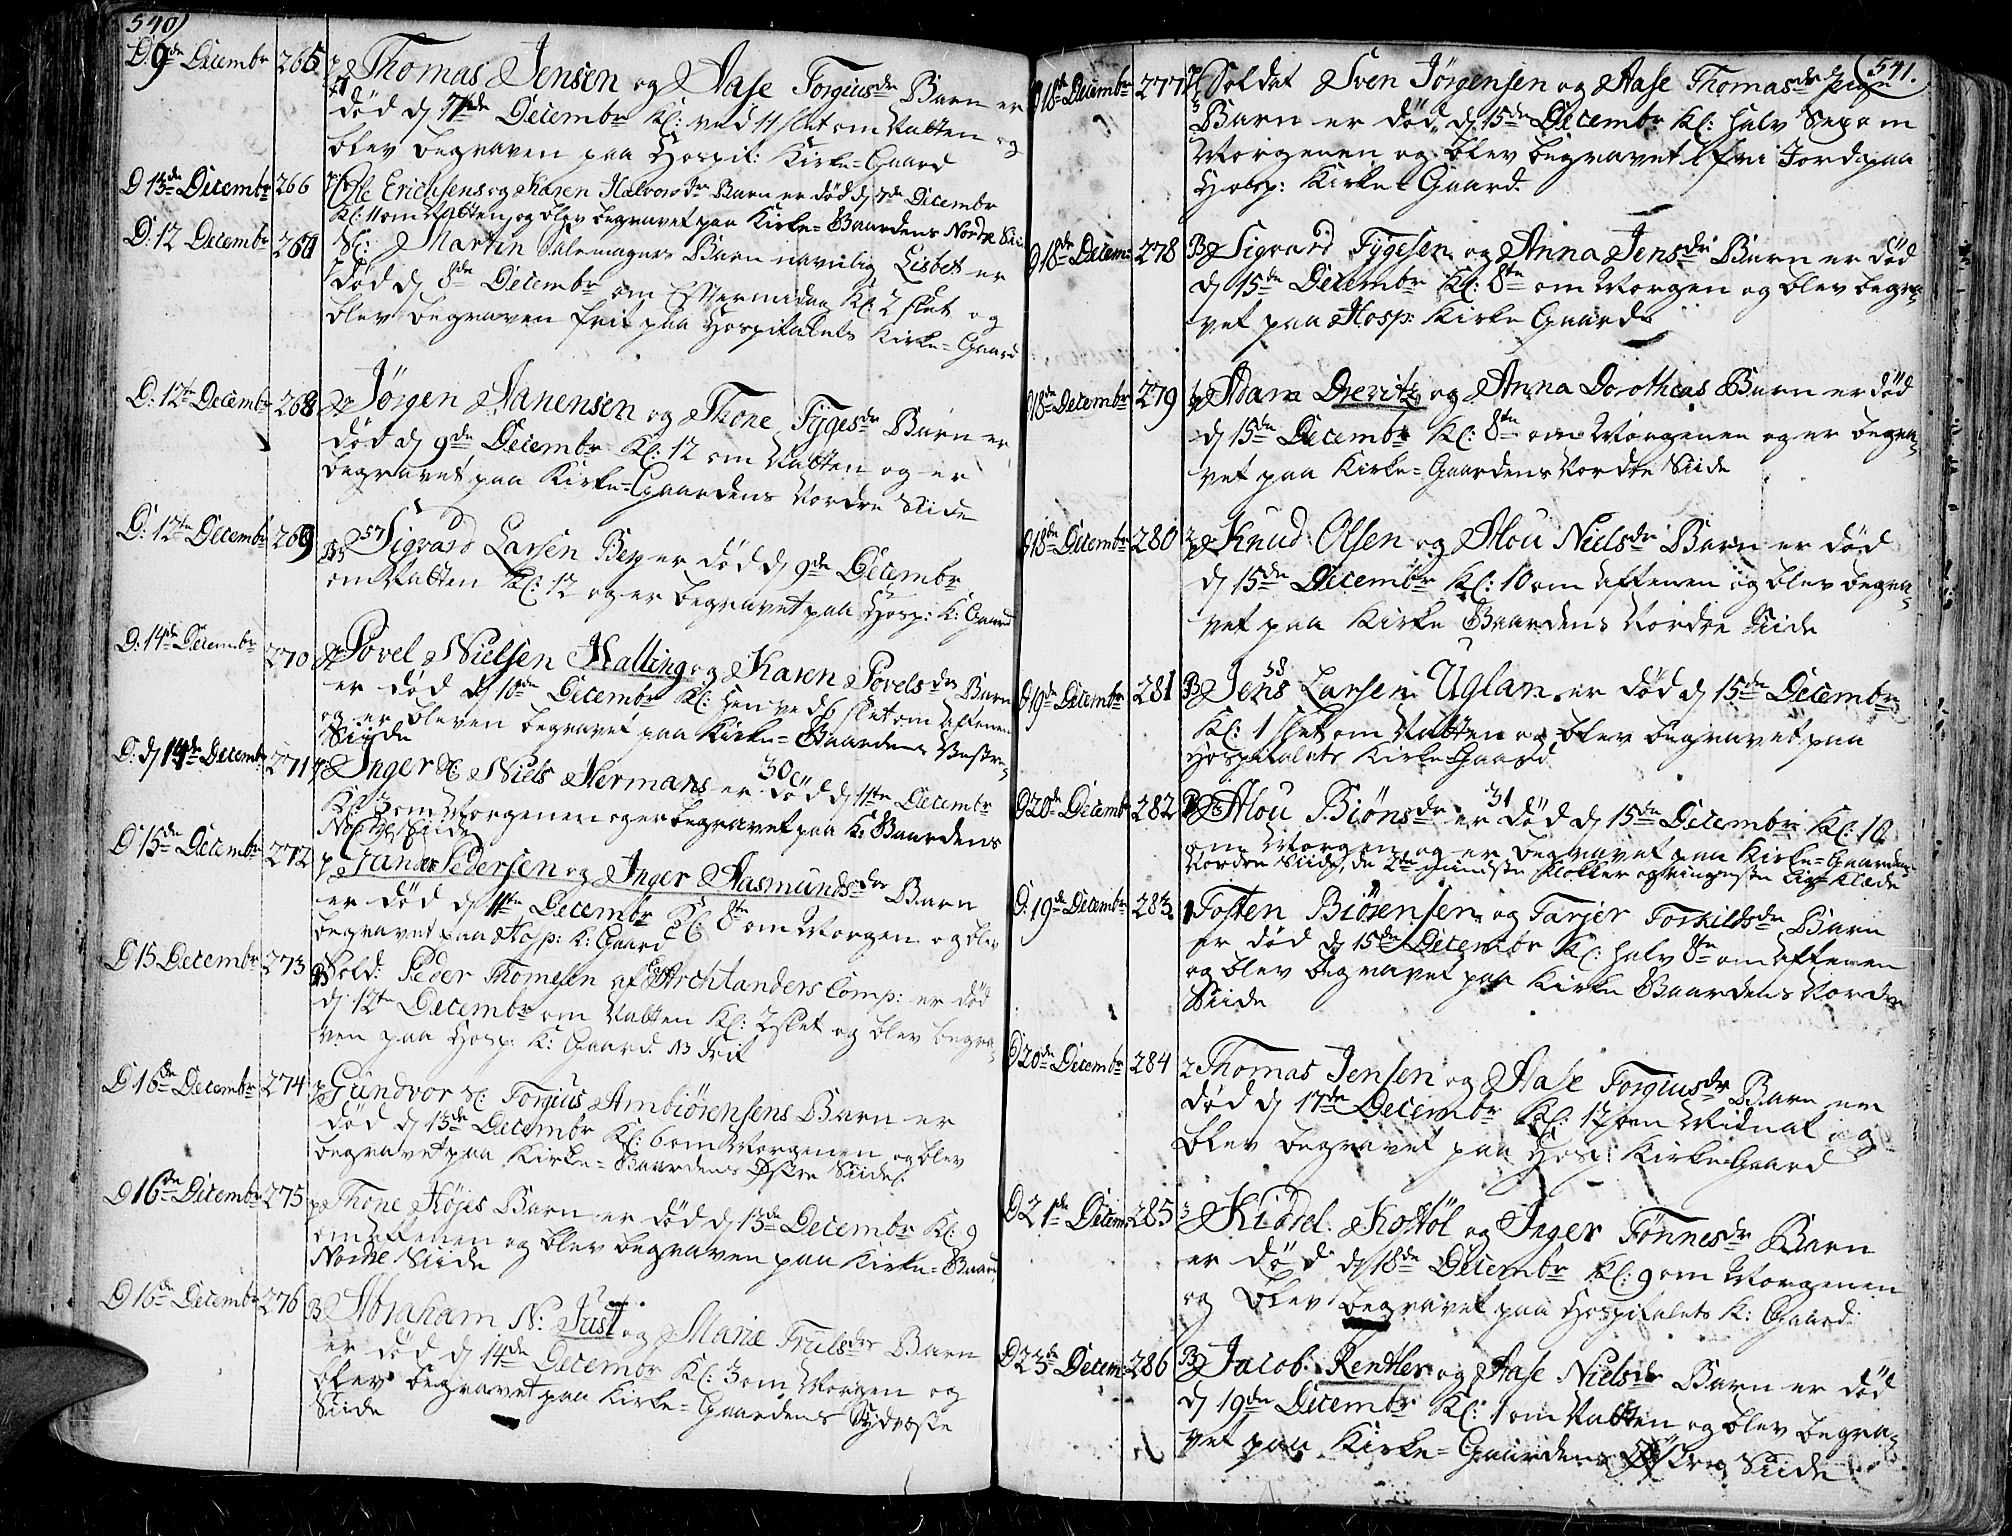 540)
D. 9de Decembr 265 Thomas Jensen og Aase Torgiusdr Barn er
død d. 7de Decembr Kl: ved 11 slet om Natten og
blev begraven paa Hospit: Kirke=Gaard
D 13de Decembr 266 Ole Erichsens og Karen Halvorsdr Barn er død d. 7de Decembr
Kl: 11 om Natten, og blev begravet paa Kirke=Gaardens Nordre Sii
D: 12 Decembr 267 Sl: Martin Salemagers Barn navnlig Lisbet er
død d. 8de Decembr om Eftermidag Kl: 2 slet og
blev begraven frit paa Hospitalets Kirke=Gaard
D: 12te Decembr 268 Jørgen Aanensen og Thone Tygesdr Barn er
død d. 9de Decembr Kl: 12 om Natten og er
begravet paa Kirke=Gaardens Nordre Siide
D: 12te Decembr 269 57 Sigvard Larsen Berg er død d. 9de Decembr
om Natten Kl: 12 og er begravet paa Hosp: K: Gaard
D: 14de Decembr 270 Povel Nielsen Halling og Karen Povelsdr Barn
er død d. 10de Decembr Kl: hen ved 6 slet om Aftenen
og er bleven begravet paa Kirke=Gaardens Vestre
Siide
D: d. 14de Decembr 271 Inger Sl: Niels Hermans er 30 død d. 11te Decembr
Kl: 3 om Morgenen og er begravet paa K: Gaardens
Nordre Siide
D 15de Decembr 272 Gunder Pedersen og Inger Aasmundsdr Barn
er død d. 11te Decembr Kl: 8te om Morgen og blev
begravet paa Hosp: K: Gaard
D 15 Decembr 273 Sold: Peder Thomesen af Archtanders Comp: er død
d. 12te Decembr om Natten Kl: 2 slet og blev begra=
ven paa Hosp: K: Gaard. NB Frit
D 16de Decembr 274 Gundvor Sl: Torgius Ambiørensens Barn er
død d. 13de Decembr Kl: 6 om Morgenen og blev
begravet paa Kirke=Gaardens Østre Siide
D 16de Decembr 275 Thone Højes Barn er død d. 13de Decembr Kl: 9
om Aftenen og blev begraven paa Kirke=Gaard
Nordre Siide
D 16de Decembr 276 Abraham N: Just og Marie Trulsdr Barn
er død d. 14de Decembr Kl: 3 om Morgen og
blev begravet paa Kirke=Gaardens Sydvæste
Siide
(541.
D 18de Decembr 277 Soldat Sven Jørgensen og Aase Thomasdr Pige
Barn er død d. 15de Decembr Kl: halv Sex om
Morgenen og blev begravet i fri Jord paa
Hosp: Kirke=Gaard
D 18de Decem: 278 Sigvard Tygesen og Anna Jensdr Barn er død
d. 15de Decembr Kl: 8te om Morgen og blev begra=
vet paa Hosp: Kirke Gaard
D 18de Decembr 279 Adam Drevitz og Anna Dorotheas Barn er død
d. 15de Decembr Kl: 8te om Morgenen og er begra=
vet paa Kirke=Gaardens Nordre Siide
D 18de Decembr 280 Knud Olsen og Alou Nielsdr Barn er død
d. 15de Decembr Kl: 10 om Aftenen og blev begra=
vet paa Kirke Gaardens Nordre Siide
D 19de Decembr 281 58 Jens Larsen Uglan er død d. 15de Decembr
Kl: 1 slet om Natten og blev begravet paa
Hospitalets Kirke Gaard
D 20de Decembr 282 Alou Biønsdr 31 er død d. 15de Decembr Kl: 10
om Morgen og er begravet paa Kirke=Gaardens
Nordre Siide, de 2de mindste Klokker og ringeste Lig=Klæde
D: 19de Decembr 283 Tosten Biørensen og Tarjer Torkildsdr Barn
er død d. 15de Decembr Kl: halv 8te om Aftenen
og blev begravet paa Kirke Gaardens Nordre
Siide
D 20de Decembr 284 Thomas Jensen og Aase Torgiusdr Barn er
død d. 17de Decembr Kl: 12 om Midnat og
blev begravet paa Hosp: Kirke Gaard
D 21de Decem: 285 Kidsel Kostøl og Inger Tønnesdr Barn
er død d. 18de Decembr Kl: 9 om Morgenen
og blev begravet paa Hospitalets K: Gaard.
D 23de Decem: 286 Jacob Rentler og Aase Nielsdr Barn er død
d. 19de Decembr Kl: 1 om Natten og blev begra=
vet paa Kirke=Gaardens Østre Siide